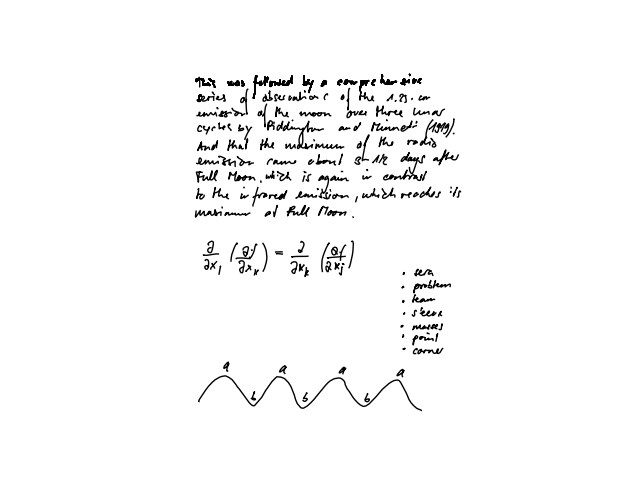 This was followed by a comprehensive
series of observations of the 1.25-cm
emission of the moon over three lunar
cycles by Piddington and Minnett (1949).
And that the maximum of the radio
emission came about 3 1/2 days after
Full Moon, which is again in contrast
to the infrared emission, which reaches its
maximum at Full Moon.
∂/∂x_j (∂f/∂x_k) = ∂/∂x_k (∂f/∂x_j)
• sera
• problem
• team
• masses
• point
• corner
a a a a
b b b